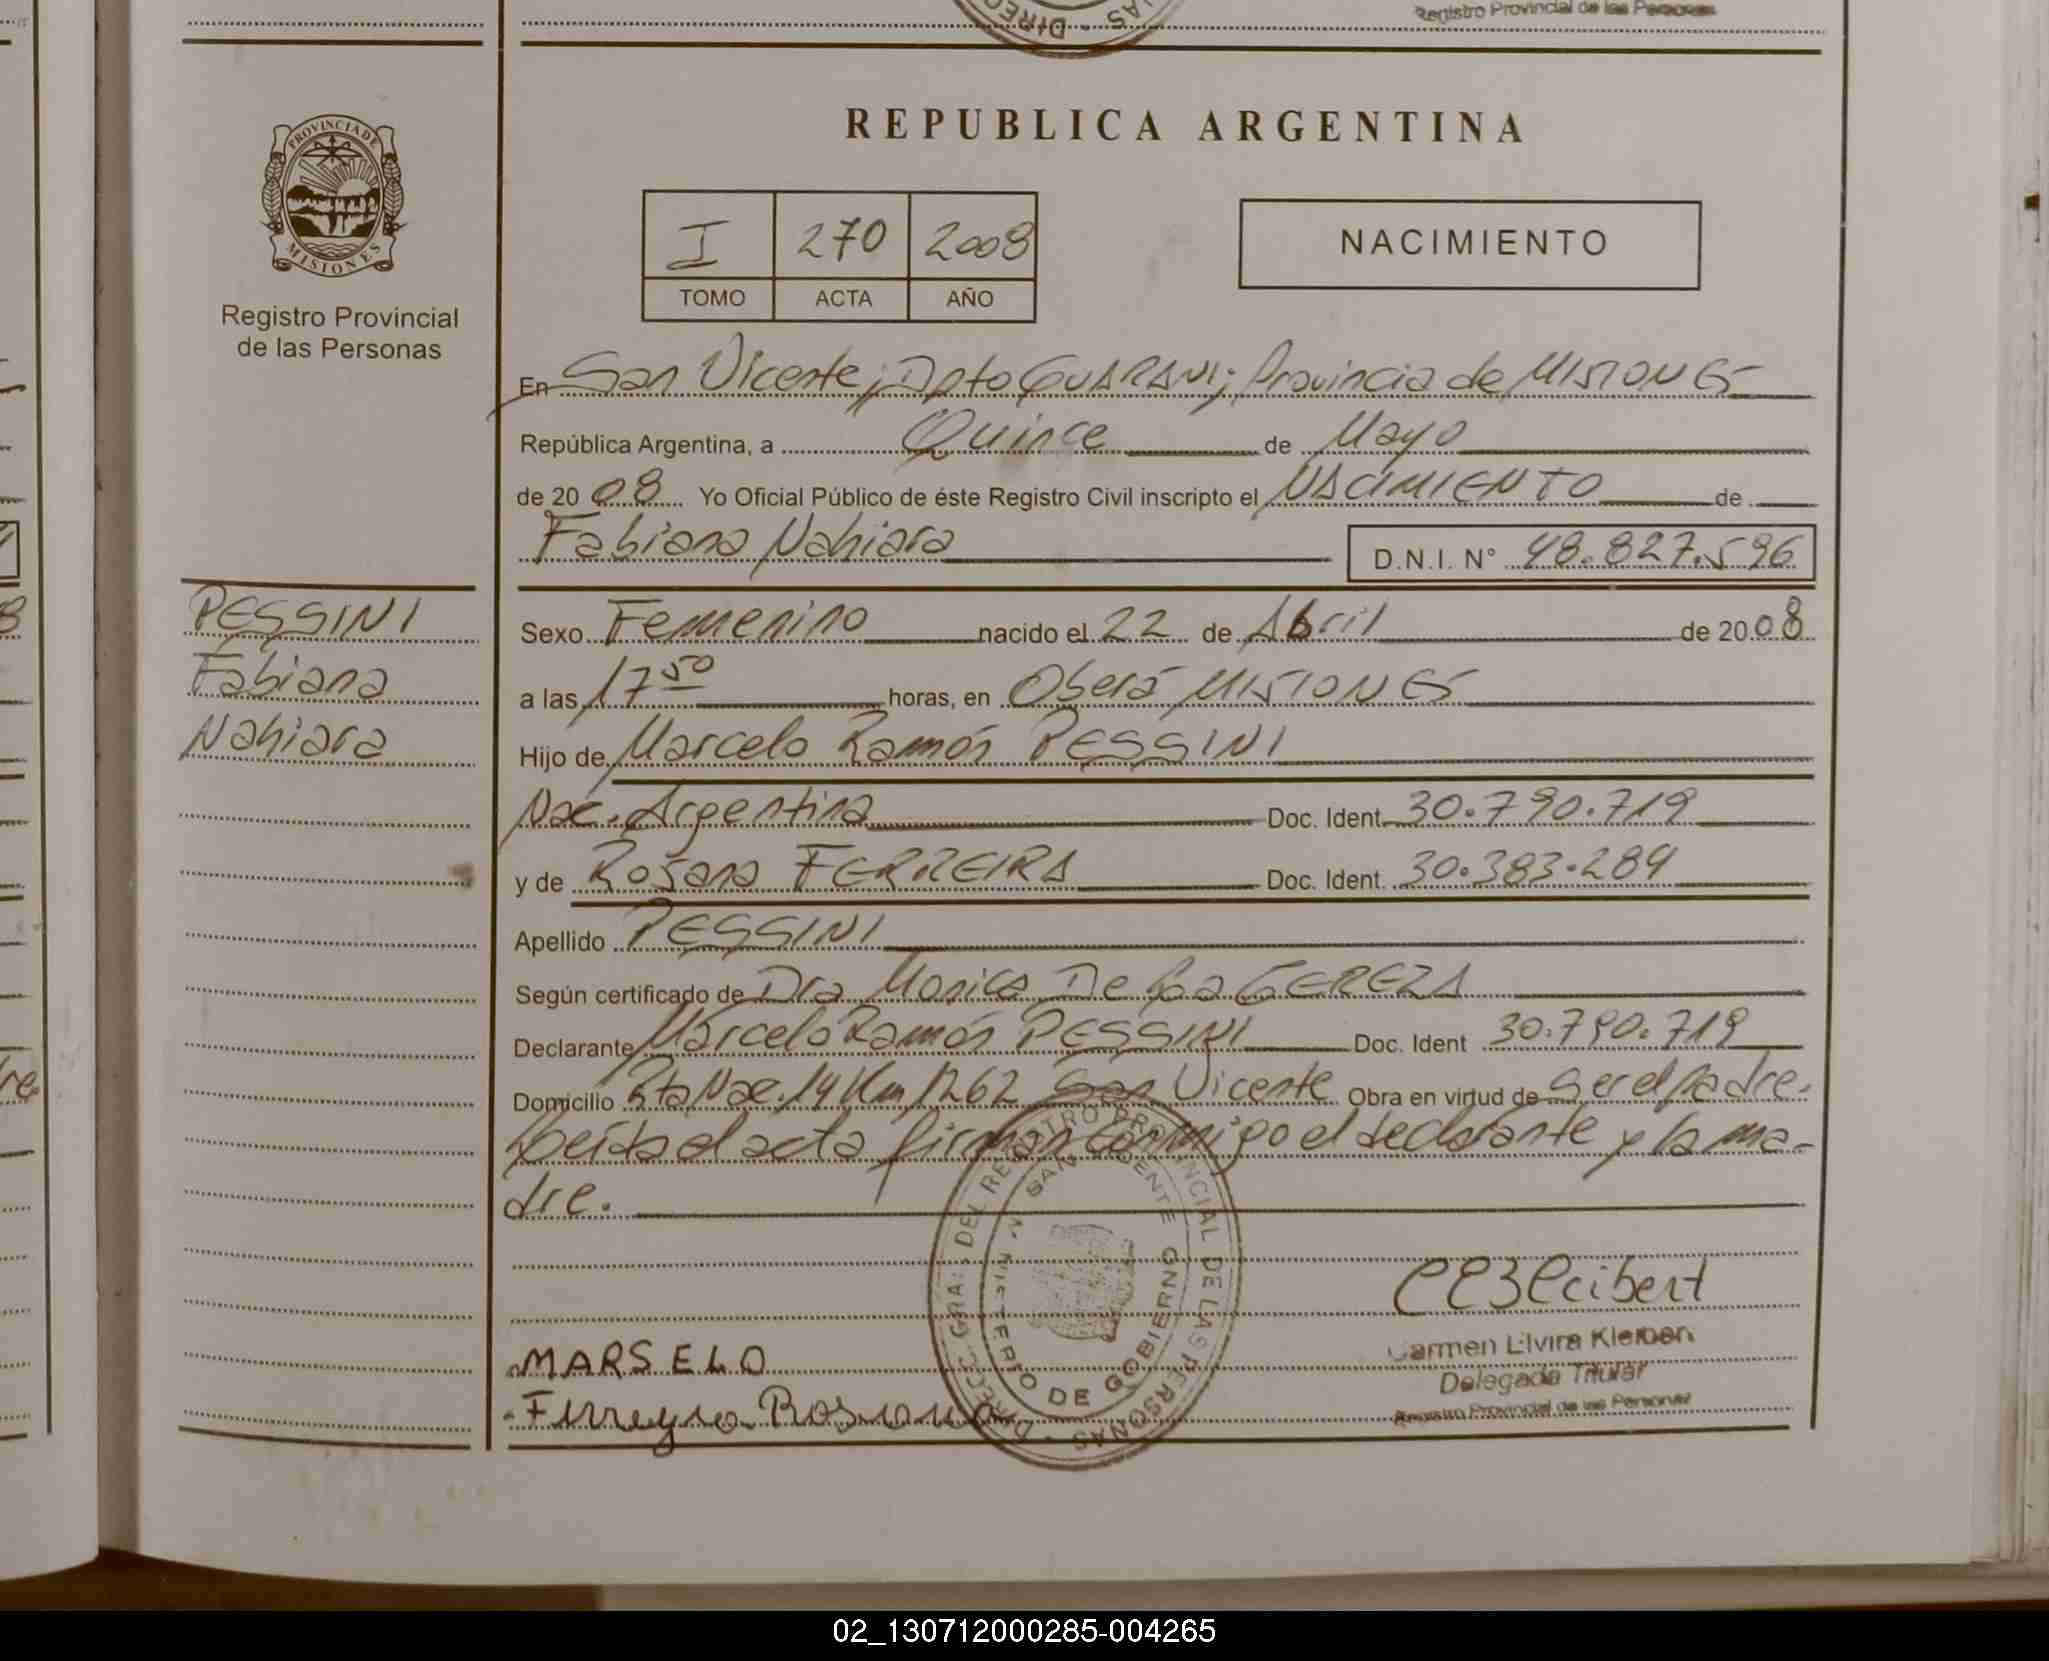 Registro Provincial de las Personas
PROVINCIA DE
MISIONES
Registro Provincial
de las Personas
REPUBLICA ARGENTINA
I 270 2008
TOMO ACTA AÑO
NACIMIENTO
En San Vicente; Dpto GUARANI; Provincia de MISIONES
República Argentina, a Quince de Mayo
de 2008 Yo Oficial Público de éste Registro Civil inscripto el NACIMIENTO de
Fabiana Nahiara D.N.I. N° 48.827.596
PESSINI
Fabiana
Nahiara
Sexo Femenino nacido el 22 de Abril de 2008
a las 17 50 horas, en Oberá MISIONES
Hijo de Marcelo Ramón PESSINI
Nac. Argentina Doc. Ident. 30.790.719
y de Rosana FERREIRA Doc. Ident. 30.383.284
Apellido PESSINI
Según certificado de Dra Monica De
Declarante Marcelo Ramón PESSINI Doc. Ident 30.790.719
Domicilio Rta Nac. 14 Km 1262 San Vicente Obra en virtud de ser el padre.
Leída el acta firman conmigo el declarante y la ma-
dre.
DIRECC. GRAL. DEL REGISTRO PROVINCIAL DE LAS PERSONAS
SAN VICENTE
MINISTERIO DE GOBIERNO
Carmen Elvira Kleiber
Delegada Titular
Registro Provincial de las Personas
MARSELO
Ferreyra Rosana
02_130712000285-004265